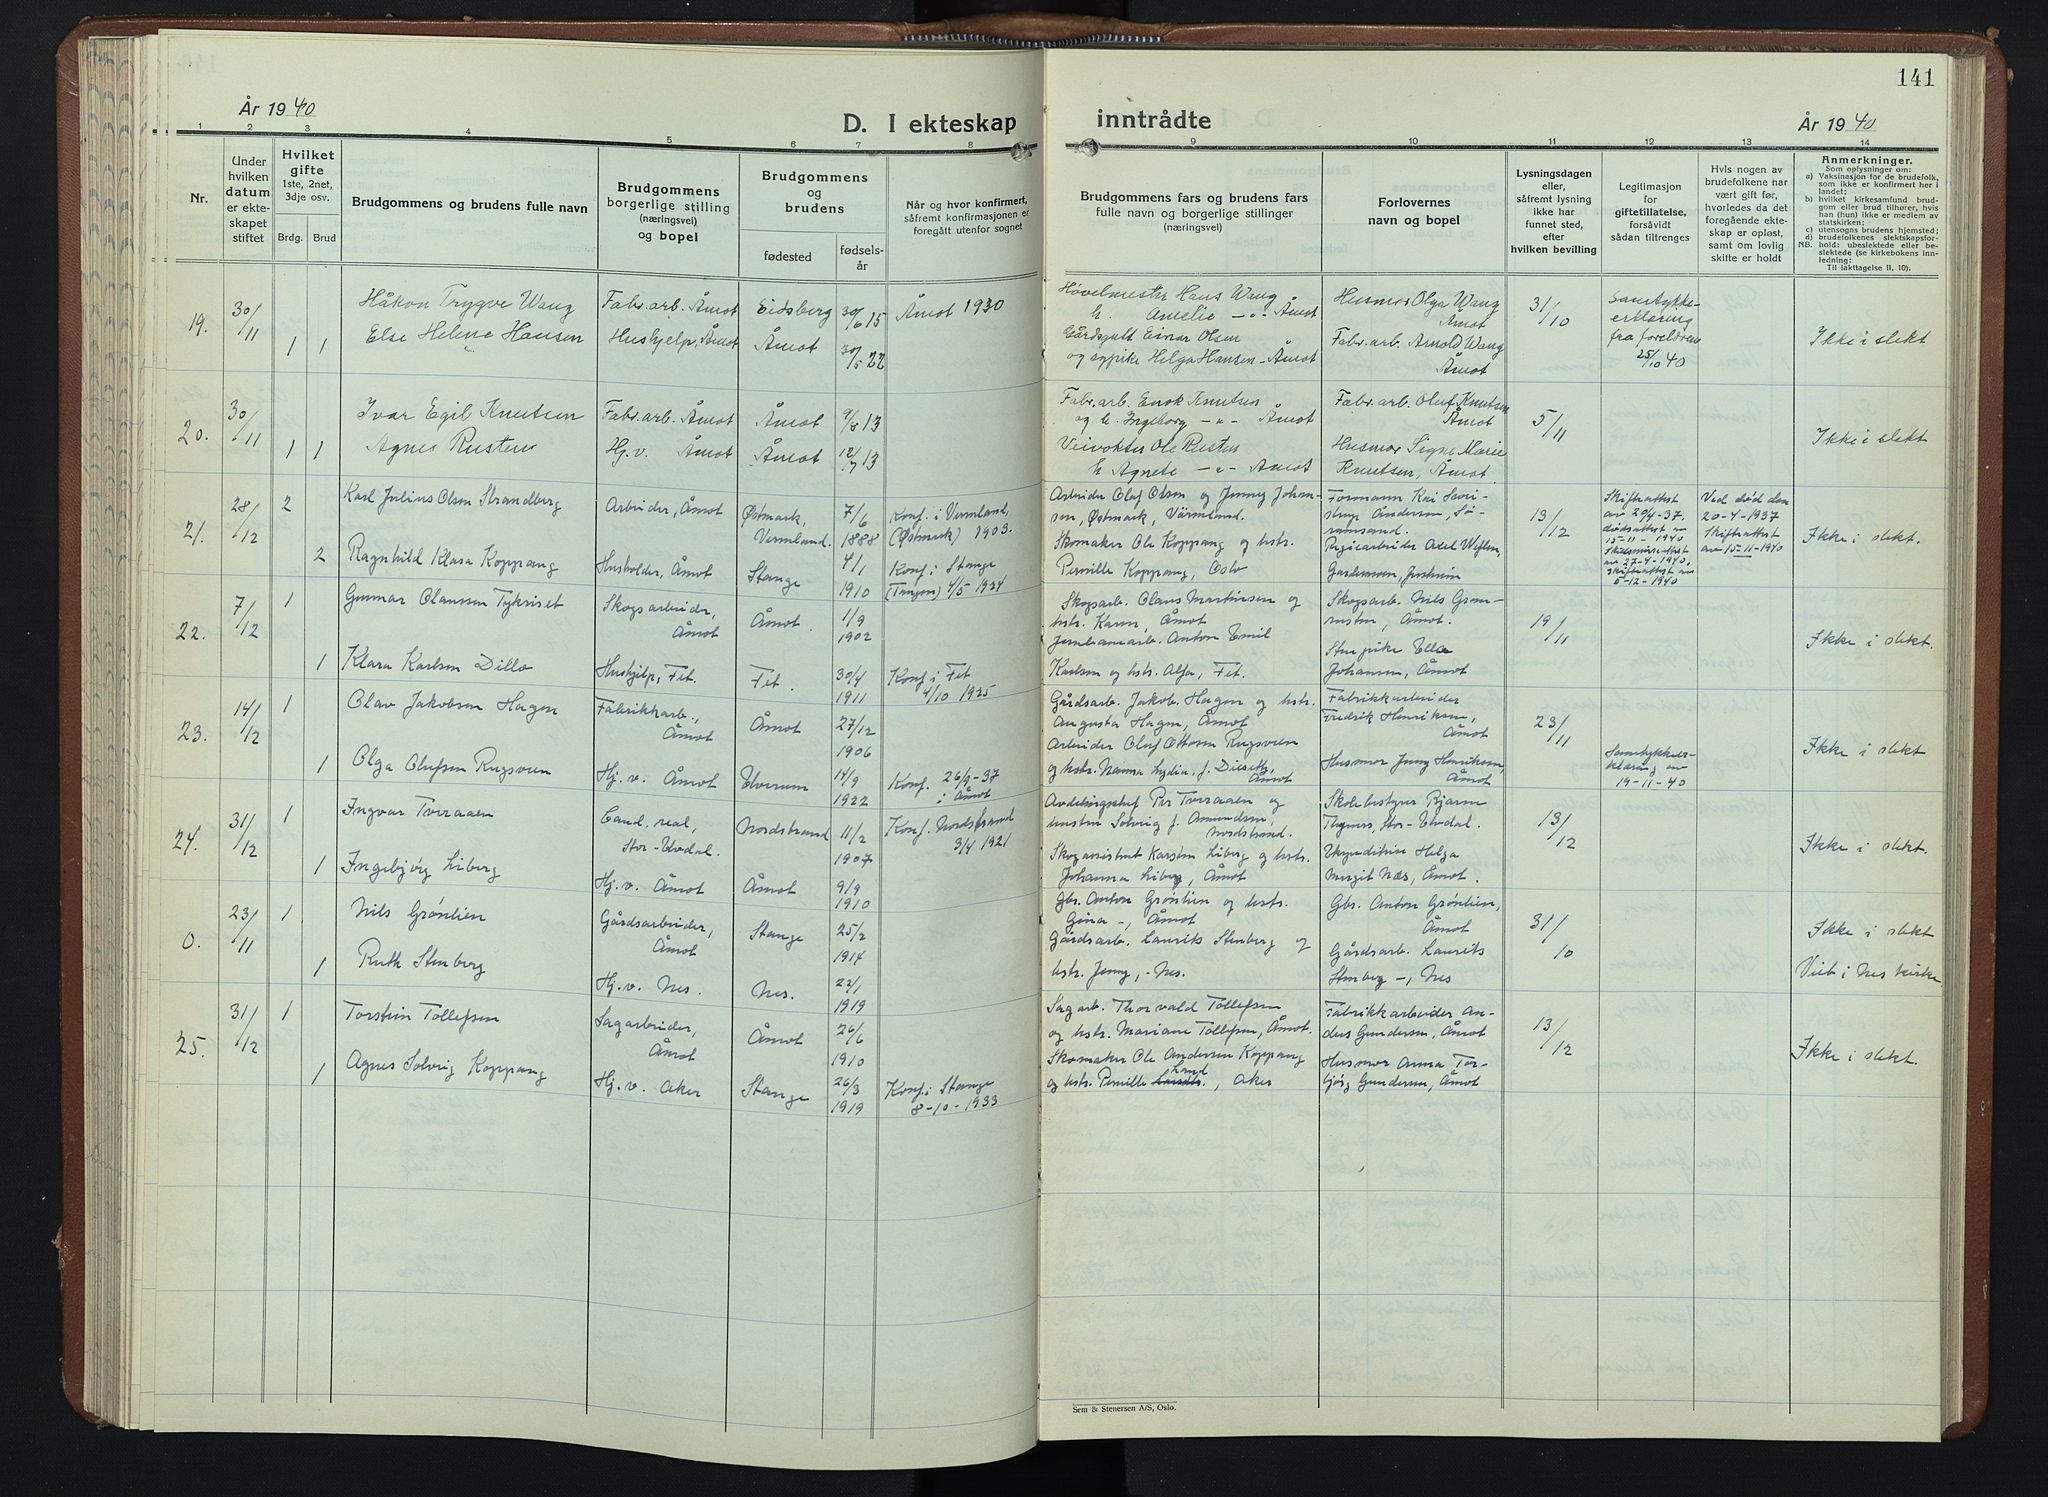 141
År 1940
D. I ekteskap inntrådte
År 1940
1 2 3 4 5 6 7 8 9 10 11 12 13 14
Nr.
Under hvilken datum er ekteskapet stiftet
Hvilket gifte 1ste, 2net, 3dje osv.
Brdg. Brud
Brudgommens og brudens fulle navn
Brudgommens borgerlige stilling (næringsvei) og bopel
Brudgommens og brudens
fødested
fødselsår
Når og hvor konfirmert, såfremt konfirmasjonen er foregått utenfor sognet
Brudgommens fars og brudens fars fulle navn og borgerlige stillinger (næringsvei)
Forlovernes navn og bopel
Lysningsdagen eller, såfremt lysning ikke har funnet sted, efter hvilken bevilling
Legitimasjon for giftetillatelse, forsåvidt sådan tiltrenges
Hvis nogen av brudefolkene har vært gift før, hvorledes da det foregående ekteskap er opløst, samt om lovlig skifte er holdt
Anmerkninger.
Som oplysninger om:
a) Vaksinasjon for de brudefolk, som ikke er konfirmert her i landet;
b) hvilket kirkesamfund brudgom eller brud tilhører, hvis han (hun) ikke er medlem av statskirken;
c) utensogns brudens hjemsted;
d) brudefolkenes slektskapsforhold: ubeslektede eller beslektede (se kirkebokens innledning:
NB.
Til iakttagelse II, 10).
19. 30/11 Håkon Trygve Wang Fabr.arb. Åmot Eidsberg 30/6 15 Åmot 1930 Høvelmester Hans Wang Husmor Olga Wang 3/10 Samtykke-
h. Amelie -"- Åmot Åmot erklæring
1 1 Else Helene Hansen Hushjelp, Åmot Åmot 30/5 22 Gårdsgutt Einar Olsen Fabr. arb. Arnold Wang fra foreldrene Ikke i slekt
og sypike Helga Hansen - Åmot Åmot 25/10 40
20. 30/11 Ivar Egil Knutsen Fabr.arb. Åmot Åmot 9/8 13 Fabr. arb. Enok Knutsen Fabr. arb. Oluf Knutsen 5/11
og h. Ingeborg -"- Åmot Åmot
1 1 Agnes Rusten Hj.v. Åmot Åmot 12/7 13 Veivokter Ole Rusten Husmor Signe Marie Ikke i slekt
h. Agnete -"- Åmot Knutsen, Åmot
21. 28/12 2 Karl Julius Olsen Strandberg Arbeider, Åmot Østmark, Vermland. 7/6 1888 Konf. i Vermland, (Østmark) 1903. Arbeider Olaf Olsen og Jenny Johan-
sen, Østmark, Värmland. 13/12 Skifteattest av 29/4-37, dødsattest av 15-11-1940 Ved død den 20-4-1937 Skifteattest av 15-11-1940
2 Ragnhild Klara Koppang Husholder, Åmot Stange 4/1 1910 Konf. i Stange (Tangen) 4/5 1924 Skomaker Ole Koppang og hstr. Ikke i slekt.
Pernille Koppang, Oslo av 27-4-1940, skifteattest av 5-12-1940
22. 7/12 1 Gunnar Olaussen Tykriset Skogsarbeider, Åmot Åmot. 1/9 1902 Skogsarb. Olaus Martinsen og Skogsarb. Nils Gron-
hstr. Karen, Åmot rusten, Åmot. 19/11
1 Klara Karlsen Dillo Hushjelp, Fet. Fet. 30/4 1911 Konf. i Fet 4/10 1925 Jernbanearb. Anton Emil Stuepike Ella Ikke i slekt.
Karlsen og hstr. Alfa, Fet. Johansen, Åmot
23. 14/12 1 Olav Jakobsen Hagen Fabrikkarb., Åmot Åmot 27/12 1906 Gårdsarb. Jakob. Hagen og hstr. Fabrikkarbeider
Augusta Hagen, Åmot Fredrik Henriksen, Åmot 23/11
1 Olga Olufsen Rugsveen Hj.v. Åmot Elverum 14/9 1922 Konf. 26/9-37 i Åmot Arbeider Oluf Ottosen Rugsveen Husmor Jenny Henriksen, Åmot Samtykkeer-
klæring av 19-11-40 Ikke i slekt
og hstr. Nanna Lydia, f. Diseth, Åmot
24. 31/12 1 Ingvar Tveraaen Cand. real, Stor-Elvdal. Nordstrand 11/2 1907 Konf. Nordstrand 3/4 1921 Avdelingschef Per Tveraaen og Skolebestyrer Bjarne
hustru Solveig f. Amundsen, Nordstrand. Thynes, Stor-Elvdal. 13/12
1 Ingebjörg Liberg Hj.v. Åmot Åmot 9/9 1910 Skogassistent Karsten Liberg og hstr. Ekspeditrise Helga Ikke i slekt.
Johanna Liberg, Åmot Margit Næs, Åmot.
0. 23/11 1 Nils Grønlien Gårdsarbeider, Åmot Stange 25/2 1914 Gbr. Anton Grønlien og hstr. Gbr. Anton Grønlien,
Gina -, Åmot Åmot 31/10 Ikke i slekt
1 Ruth Stenberg Hj.v. Nes. Nes. 22/1 1919 Gårdsarb. Laurits Stenberg og Gårdsarb. Laurits
hstr. Jenny, - Nes. Stenberg -, Nes Viet i Nes kirke
25. 31/12 1 Torstein Tollefsen Sagarbeider, Åmot Åmot 26/6 1910 Sagarb. Thorvald Tollefsen Fabrikkarbeider An-
og hstr. Mariane Tollefsen, Åmot. ders Gundersen, Åmot 13/12
1 Agnes Solveig Koppang Hj.v. Aker Stange 26/3 1919 Konf. i Stange 8-10-1933 Skomaker Ole Andersen Koppang Husmor Anna Tor- Ikke i slekt.
og hstr. Pernille, Aker björg Gundersen, Åmot
Sem & Stenersen A/S, Oslo.